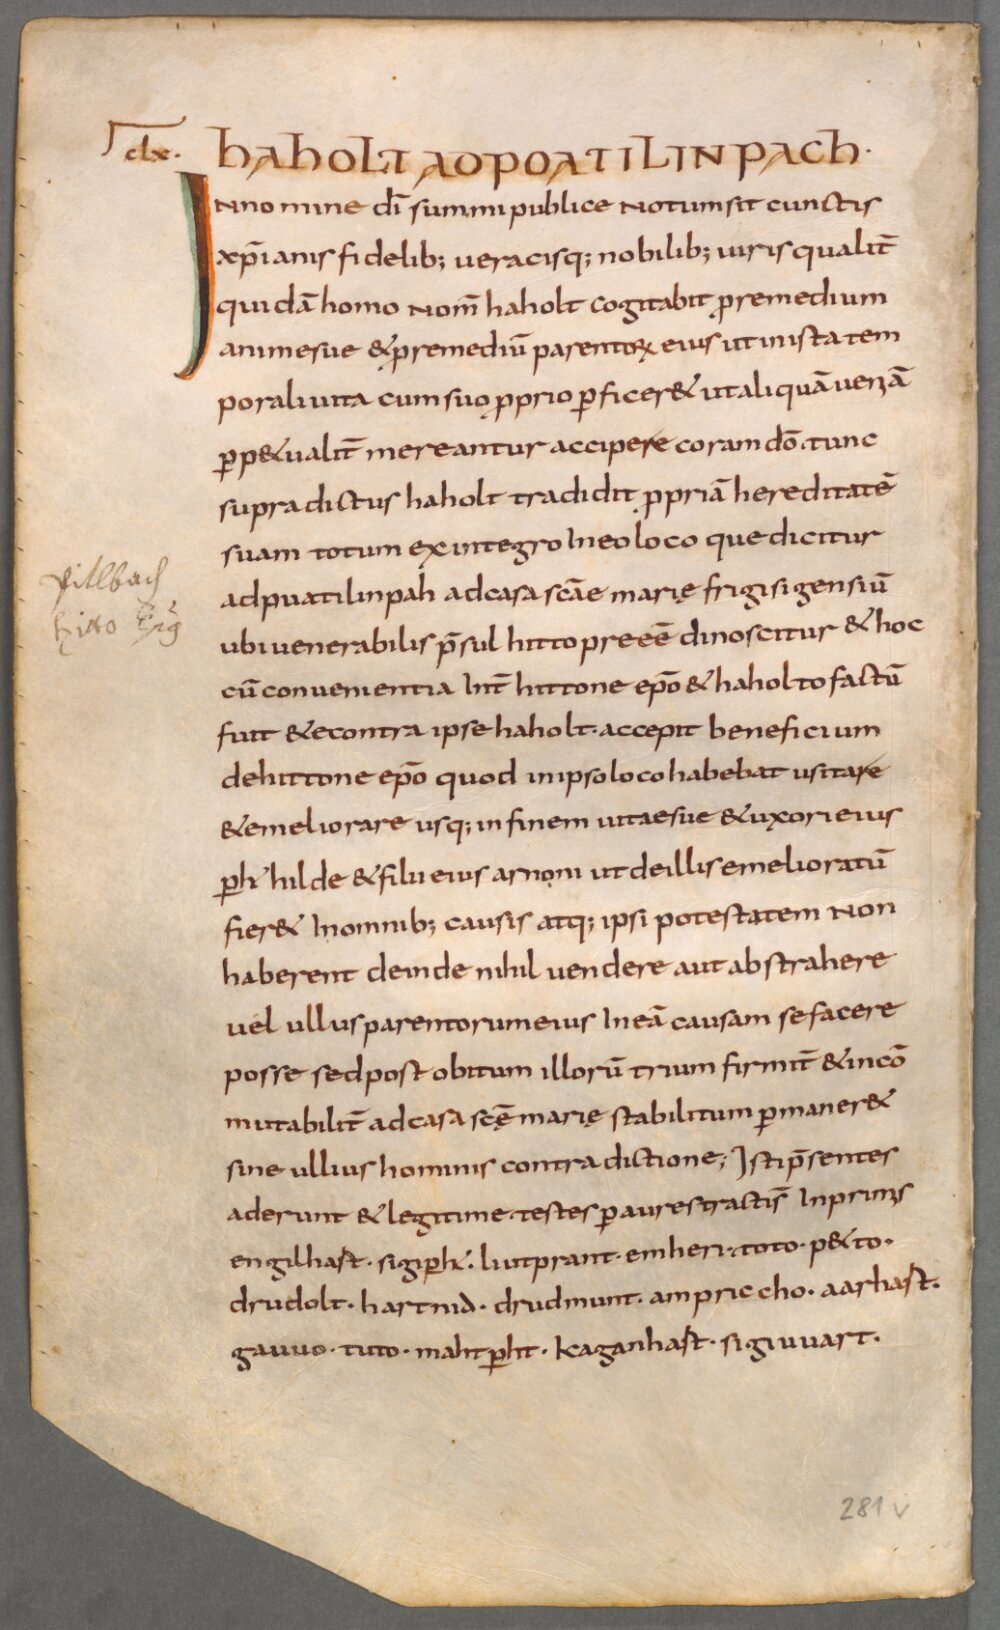 clx.
hAhOLT AD POATILINPACh·
INno mine dī summi publice Notum sit cunctis
xp̄ianis fidelib; veracisq; nobilib; uiris qualit̄
quidā homo Nom̄ haholt cogitabit p̱remedium
anime sue & p̱remediū parentoꝝ eius ut in ista tem
porali uita cum suo p̱prio ꝑficer& ut aliquā ueniā
ꝑp&ualit̄ mereantur accipere coram dō. tunc
supra dictus haholt tradidit p̱priā hereditatē
suam totum ex integro In eo loco que dicitur
ad puatilinpah ad casa scāe marię frigisigensiū
ubi uenerabilis p̄sul hitto preeē dinoscitur & hoc
cū conuenientia Int̄ hittone ep̄o & haholto factū
fuit & econtra ipse haholt· accepit beneficium
de hittone ep̄o quod in ipso loco habebat usitare
& emeliorare usq; in finem uitae sue & uxori eius
ꝑht hilde & filii eius arnoni ut de illis emelioratū
fier& In omnib; causis atq; ipsi potestatem Non
haberent deinde nihil uendere aut abstrahere
uel ullus parentorum eius In eā causam se facere
posse sed post obitum illorū trium firmit̄ & incō
mutabilit̄ ad casa scę̄ marię stabilitum ꝑmaner&
sine ullius hominis contradictione; Isti p̄sentes
aderunt & legitime testes ꝑ aures tractis̄ In primis
engilhast· sigiꝑht· liutprant· emheri· toto· p&to·
drudolt· hartnid· drudmunt· ampriccho· aarhast·
gauuo· tuto· mahtꝑht· kaganhast· sigiuuart·
Pitlbach
hitto
281 v